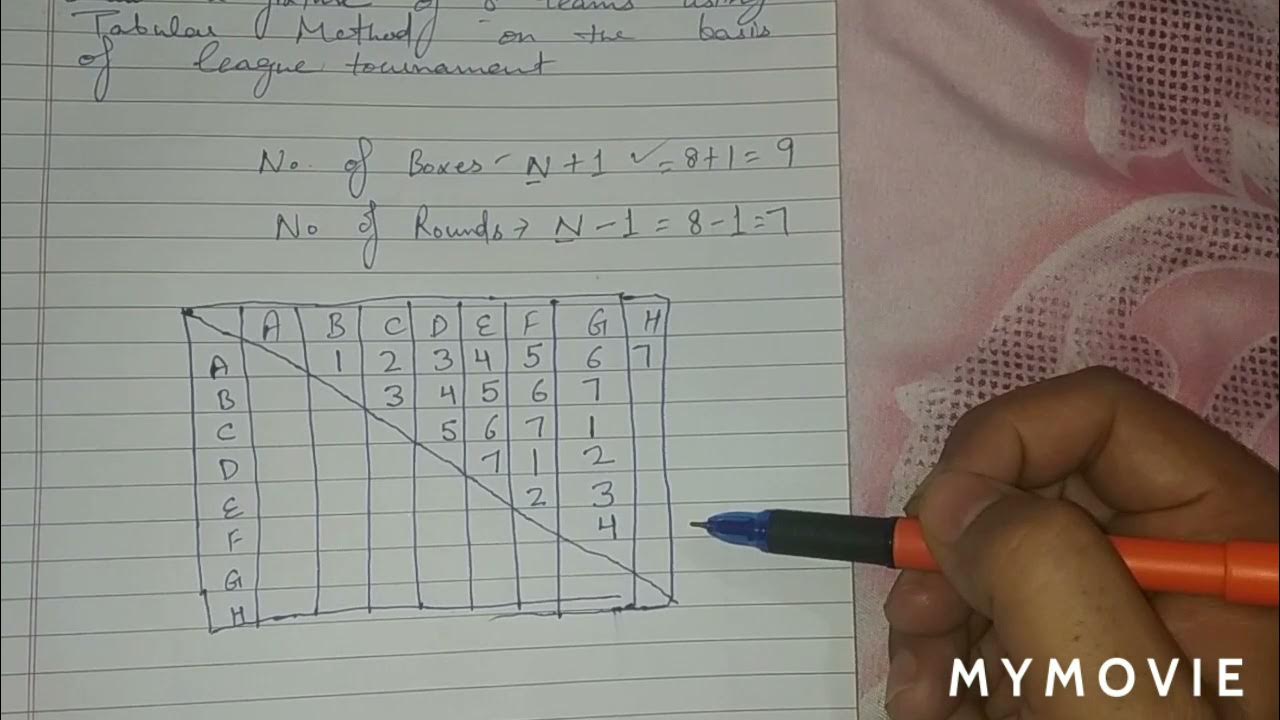 of 8 teams using
Tabular Method on the basis
of league tournament
No. of Boxes - N + 1 ✓ = 8+1 = 9
No of Rounds → N - 1 = 8 - 1 = 7
A B C D E F G H
A 1 2 3 4 5 6 7
B 3 4 5 6 7
C 5 6 7 1
D 7 1 2
E 2 3
F 4
G
H
MYMOVIE